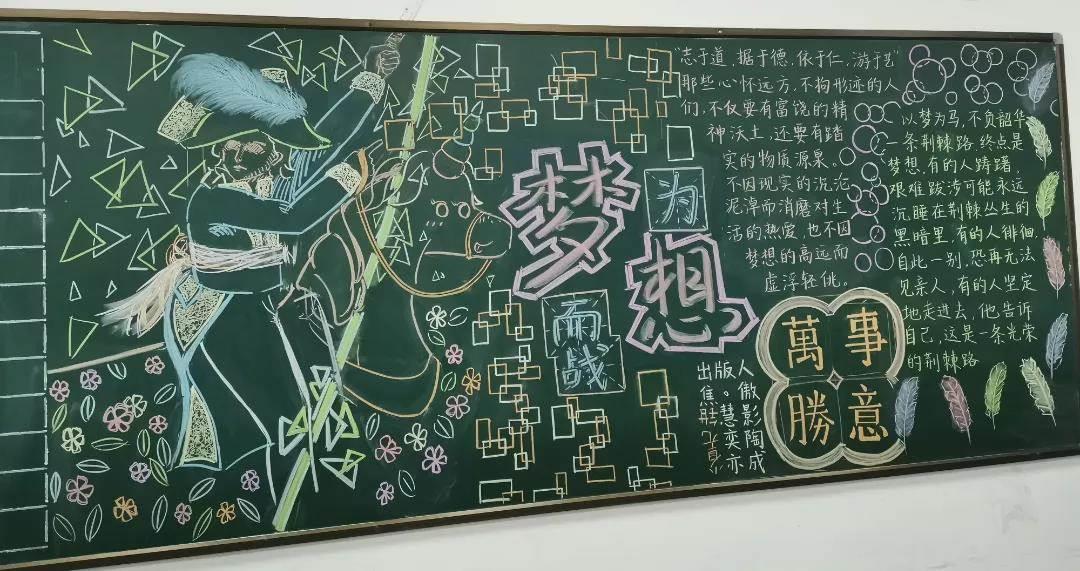 为梦想
而战
“志于道，据于德，依于仁，游于艺”
那些心怀远方，不拘形迹的人
们，不仅要有富饶的精
神沃土，还要有踏
实的物质源泉。
不因现实的沉沦
泥淖而消磨对生
活的热爱，也不因
梦想的高远而
虚浮轻佻。
以梦为马，不负韶华
一条荆棘路，终点是
梦想，有的人踌躇，
艰难跋涉可能永远
沉睡在荆棘丛生的
黑暗里，有的人徘徊
自此一别，恐再无法
见亲人，有的人坚定
地走进去，他告诉
自己，这是一条光荣
的荆棘路
萬事
勝意
出版人
焦。傲
慧影
奕陶
亦成